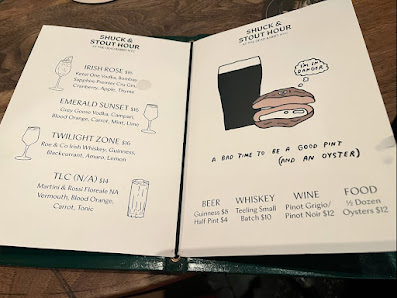 SHUCK &
STOUT HOUR
IRISH ROSE $15
Ketel One Vodka, Bombay
Sapphire Premier Cru Gin,
Cranberry, Apple, Thyme
EMERALD SUNSET $15
Grey Goose Vodka, Campari,
Blood Orange, Carrot, Mint, Lime
TWILIGHT ZONE $16
Roe & Co Irish Whiskey, Guinness,
Blackcurrant, Amaro, Lemon
TLC (N/A) $14
Martini & Rossi Floreale NA
Vermouth, Blood Orange,
Carrot, Tonic
SHUCK &
STOUT HOUR
I'M IN
DANGER
A BAD TIME TO BE A GOOD PINT
(AND AN OYSTER)
BEER
Guinness $8
Half Pint $4
WHISKEY
Teeling Small
Batch $10
WINE
Pinot Grigio/
Pinot Noir $12
FOOD
½ Dozen
Oysters $12